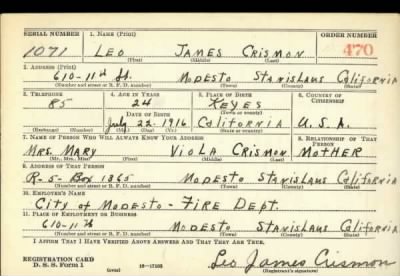 SERIAL NUMBER 1. NAME (Print) ORDER NUMBER
1071 LEO JAMES CRISMON 470
(First) (Middle) (Last)
2. ADDRESS (Print)
610-11th St. MODESTO STANISLAUS CALIFORNIA
(Number and street or R. F. D. number) (Town) (County) (State)
3. TELEPHONE 4. AGE IN YEARS 5. PLACE OF BIRTH 6. COUNTRY OF CITIZENSHIP
85 24 KEYES
DATE OF BIRTH (Town or county)
July 22 1916 CALIFORNIA U.S.A.
(Exchange) (Number) (Mo.) (Day) (Yr.) (State or country)
7. NAME OF PERSON WHO WILL ALWAYS KNOW YOUR ADDRESS 8. RELATIONSHIP OF THAT PERSON
MRS. MARY VIOLA CRISMON MOTHER
(Mr., Mrs., Miss) (First) (Middle) (Last)
9. ADDRESS OF THAT PERSON
R-5-Box 1365 MODESTO STANISLAUS CALIFORNIA
(Number and street or R. F. D. number) (Town) (County) (State)
10. EMPLOYER'S NAME
CITY OF MODESTO - FIRE DEPT.
11. PLACE OF EMPLOYMENT OR BUSINESS
610-11th MODESTO STANISLAUS CALIFORNIA
(Number and street or R. F. D. number) (Town) (County) (State)
I AFFIRM THAT I HAVE VERIFIED ABOVE ANSWERS AND THAT THEY ARE TRUE.
REGISTRATION CARD Leo James Crismon
D. S. S. Form 1 (over) (Registrant's signature)